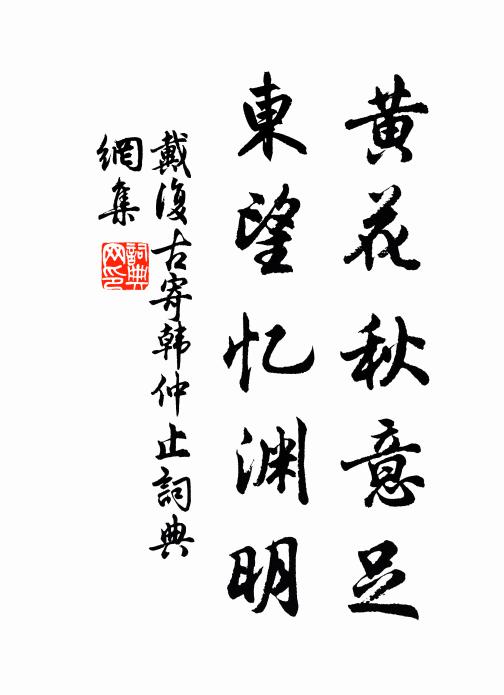 黄花秋意足
東望忆渊明
戴復古寄韩仲止詞典
網集
詞典网印